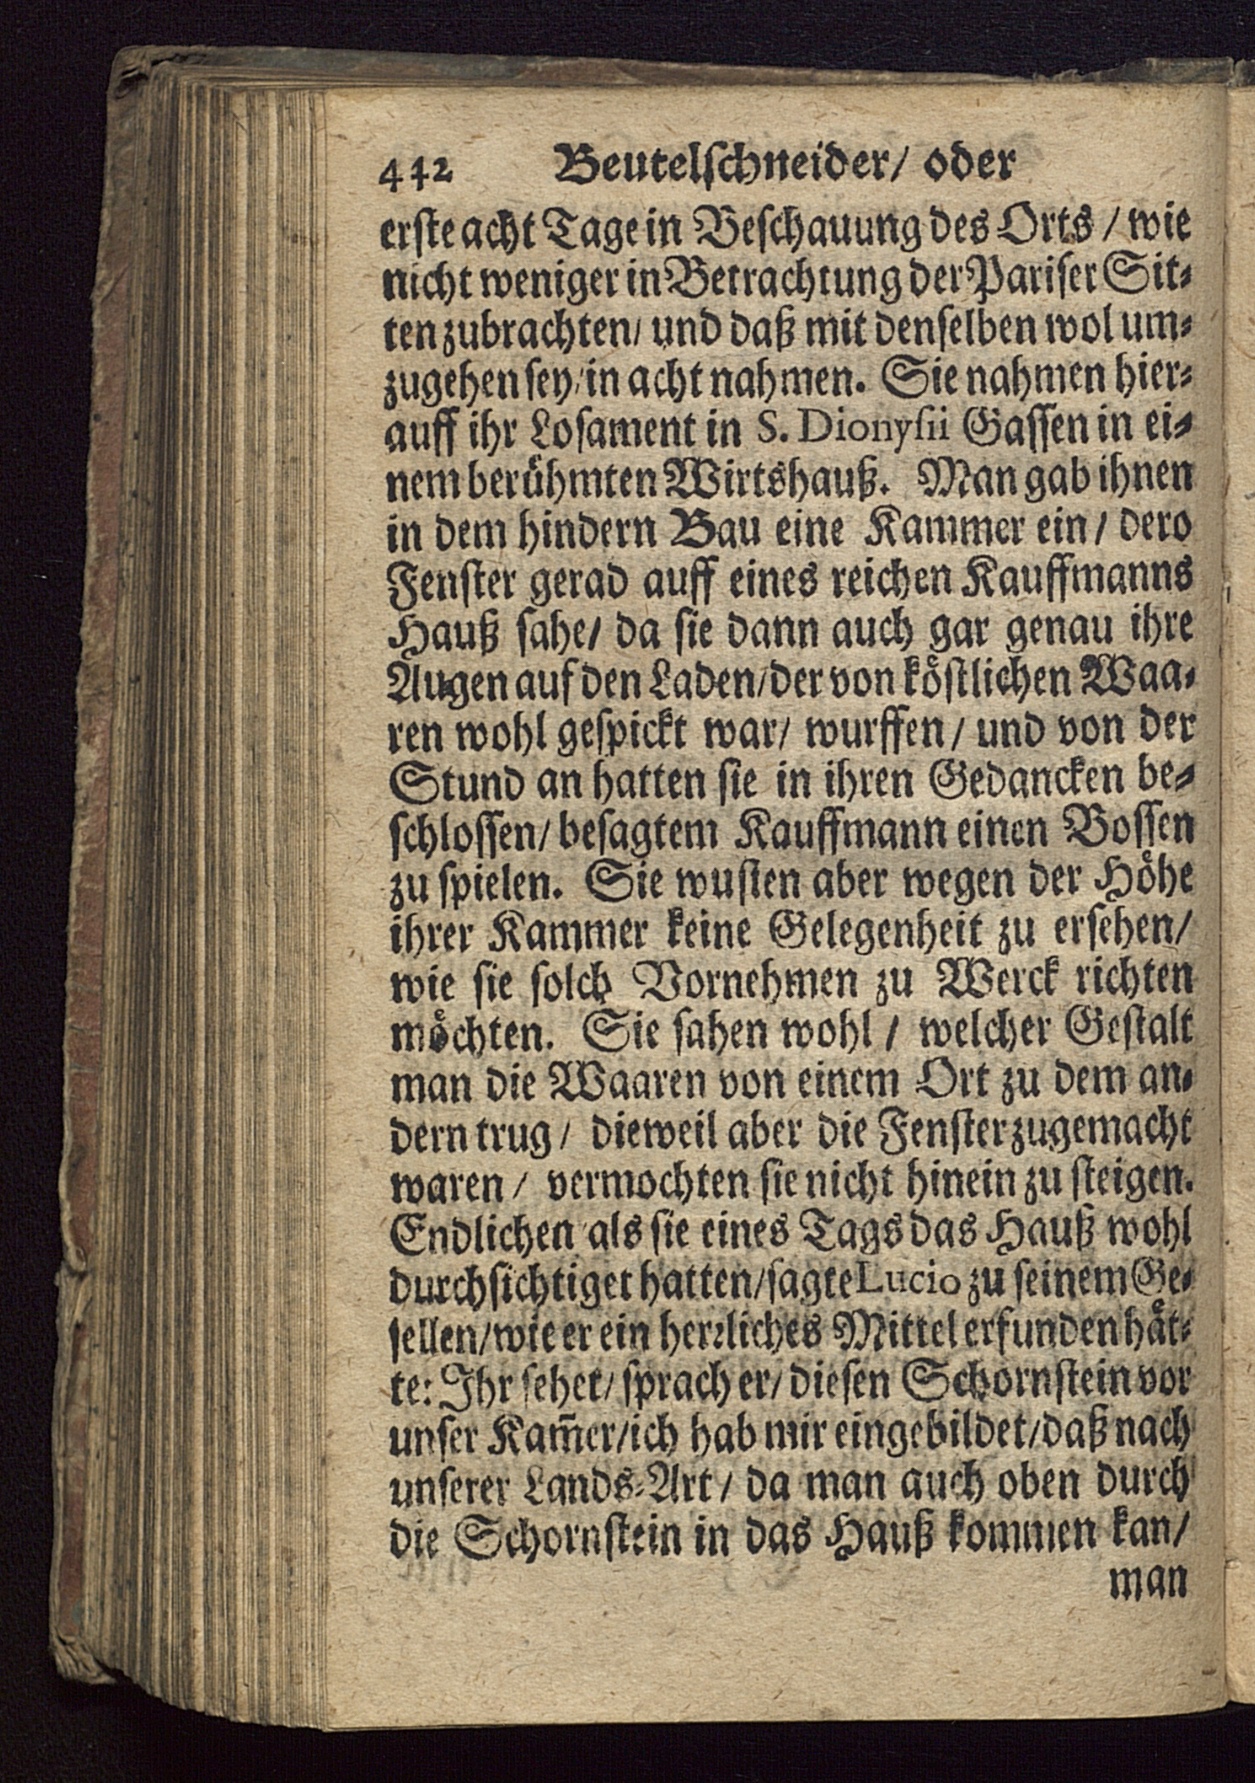 442 Beutelſchneider/ oder
erſte acht Tage in Beſchauung des Orts / wie
nicht weniger in Betrachtung der Pariſer Sit⸗
ten zubrachten/ und daß mit denſelben wol um⸗
zugehen ſey/ in acht nahmen. Sie nahmen hier⸗
auff ihr Loſament in S. Dionyſii Gaſſen in ei⸗
nem beruͤhmten Wirtshauß. Man gab ihnen
in dem hindern Bau eine Kammer ein / dero
Fenſter gerad auff eines reichen Kauffmanns
Hauß ſahe/ da ſie dann auch gar genau ihre
Augen auf den Laden/ der von koͤſtlichen Waa⸗
ren wohl geſpickt war/ wurffen / und von der
Stund an hatten ſie in ihren Gedancken be⸗
ſchloſſen/ beſagtem Kauffmann einen Boſſen
zu ſpielen. Sie wuſten aber wegen der Hoͤhe
ihrer Kammer keine Gelegenheit zu erſehen/
wie ſie ſolch Vornehmen zu Werck richten
moͤchten. Sie ſahen wohl / welcher Geſtalt
man die Waaren von einem Ort zu dem an⸗
dern trug / dieweil aber die Fenſter zugemacht
waren / vermochten ſie nicht hinein zu ſteigen.
Endlichen als ſie eines Tags das Hauß wohl
durchſichtiget hatten/ ſagte Lucio zu ſeinem Ge⸗
ſellen/ wie er ein herꝛliches Mittel erfunden haͤt⸗
te: Ihr ſehet/ ſprach er/ dieſen Schornſtein vor
unſer Kam̃er/ ich hab mir eingebildet/ daß nach
unſerer Lands⸗Art / da man auch oben durch
die Schornſtein in das Hauß kommen kan/
man